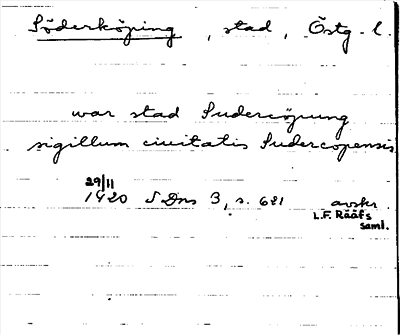 Söderköping, stad, Östg. l.
war stad Sudercöpung
sigillum ciuitatis Sudercopensis
29/11
1420 SDns 3, s. 621 avskr
L.F. Rääfs
saml.